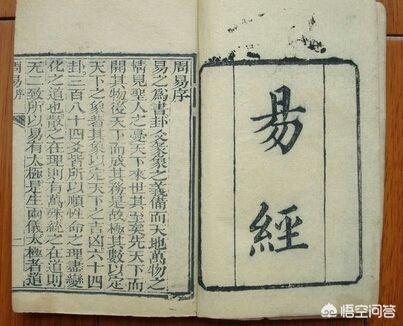 易經
周易序
易之爲書卦爻彖象之義備而天地萬物之
情見聖人之憂天下來世其至矣先天下而
開其物後天下而成其務是故極其數以定
天下之象著其象以定天下之吉凶六十四
卦三百八十四爻皆所以順性命之理盡變
化之道也散之在理則有萬殊統之在道則
无二致所以易有太極是生兩儀太極者道
周易序
悟空问答